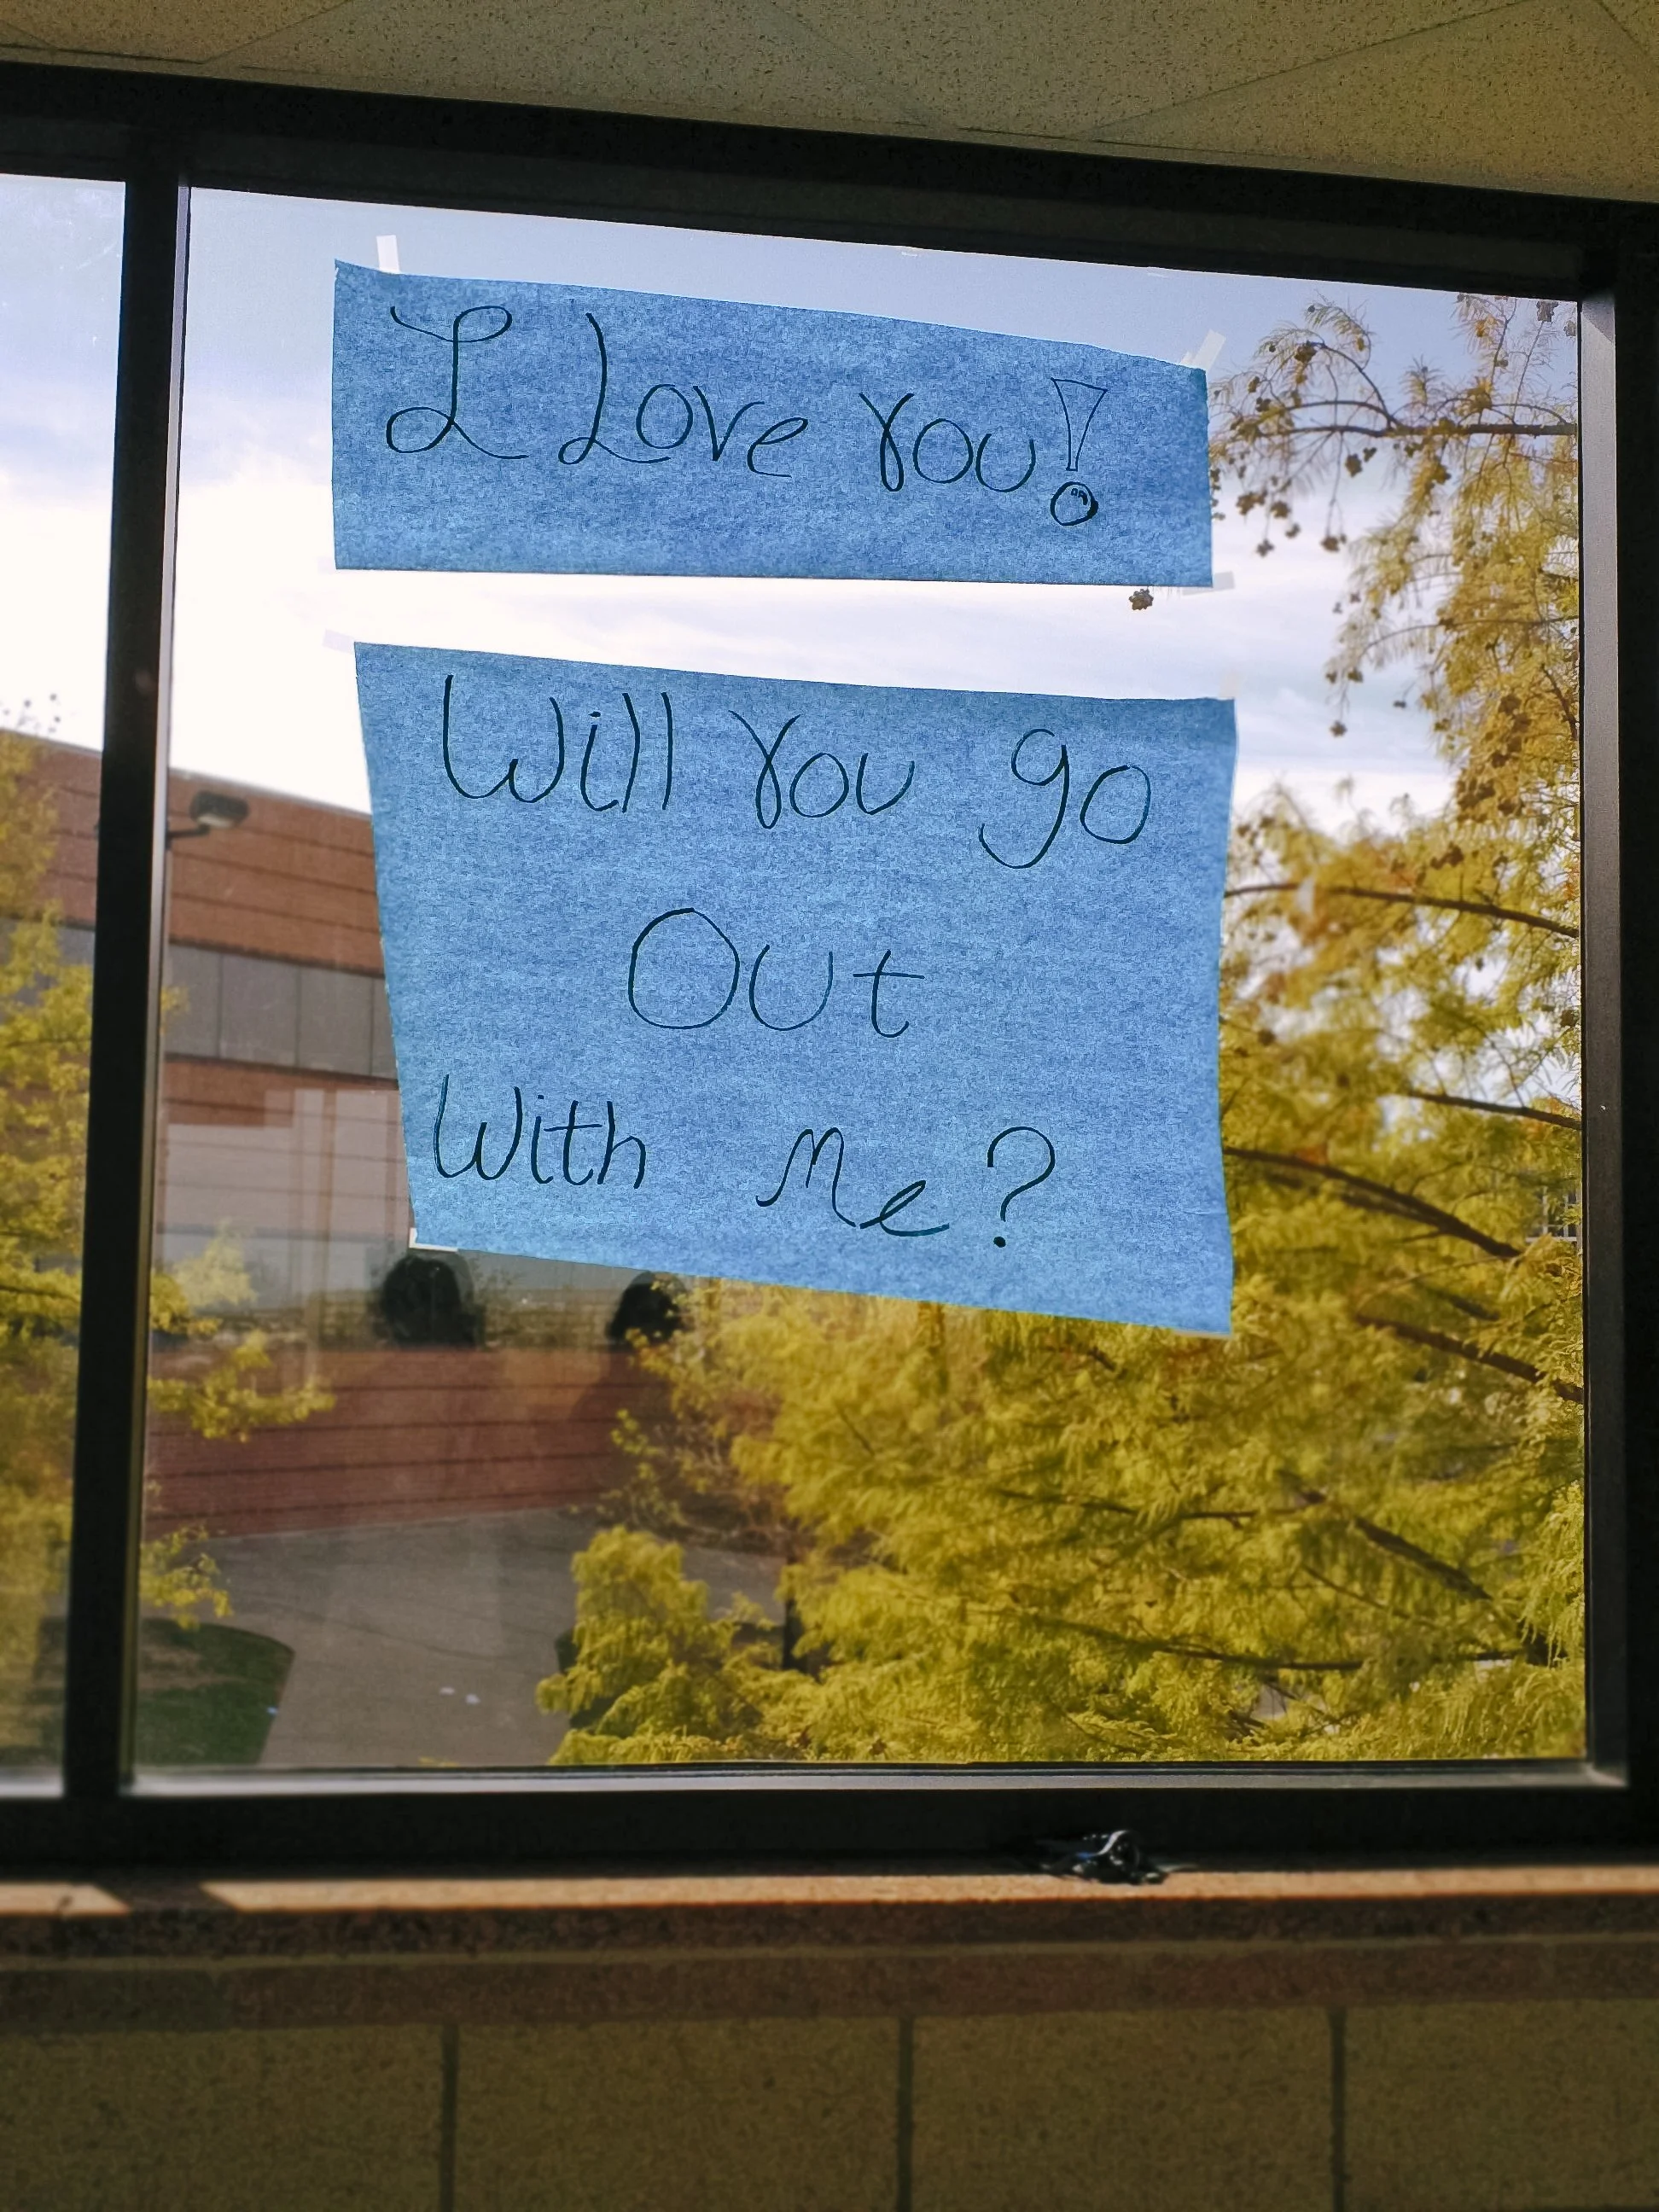 I Love You!
Will You go
Out
With Me?